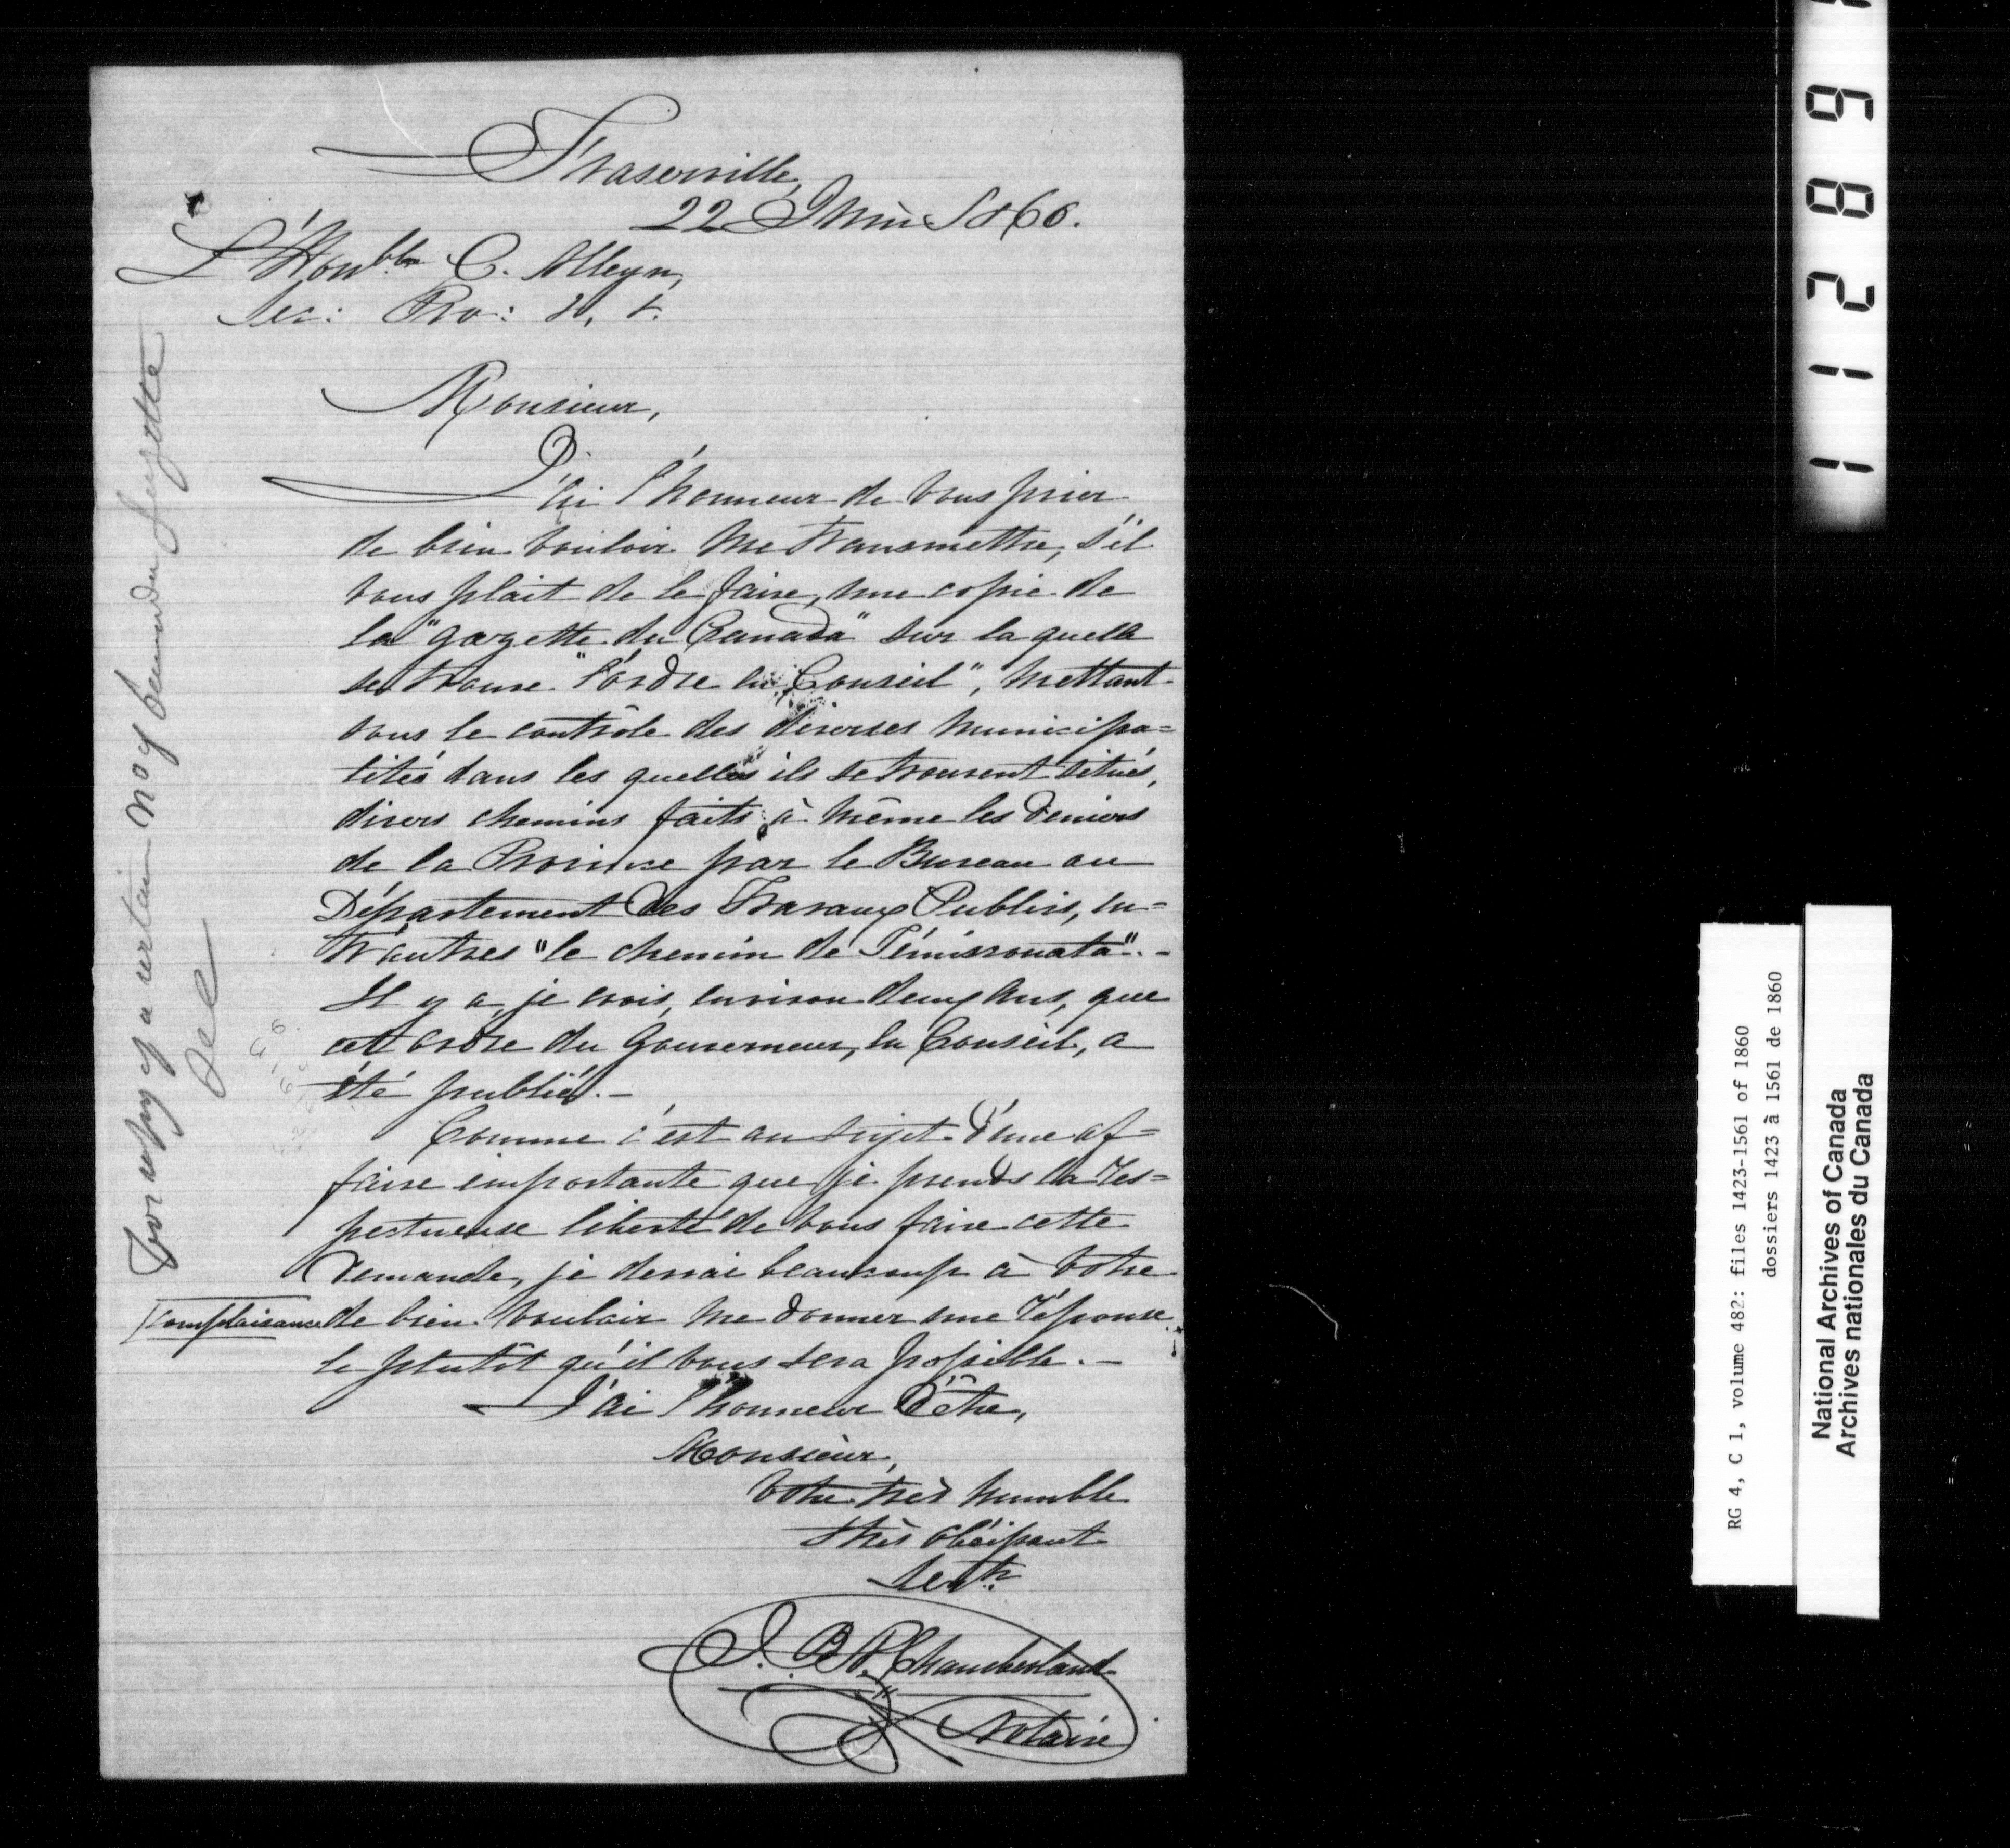 Fraserville,
22 Juin 1860.
L'Honble C. Alleyn,
Sec: Pro: &, &.
Monsieur,
J'ai l'honneur de vous prier
de bien vouloir me transmettre, s'il
vous plait de le faire, une copie de
la "Gazette du Canada" sur la quelle
se trouve "l'ordre en Conseil", mettant
sous le contrôle des diverses municipa=
lités dans les quelles ils se trouvent situés,
divers chemins faits à même les deniers
de la Province par le Bureau ou
Département des Travaux Publics, en=
tr'autres "le chemin de Témiscouata".-
Il y a, je crois, environ deux ans, que
cet ordre du Gouverneur, en Conseil, a
été publié.-
Comme c'est au sujet d'une af=
faire importante que je prends la res=
pectueuse liberté de vous faire cette
demande, je devrai beaucoup à votre
complaisance de bien vouloir me donner une réponse
le plutôt qu'il vous sera possible.-
J'ai l'honneur d'être,
Monsieur,
Votre très humble
& très obéissant
Servtr.
J. B. Chamberland
Notaire
a certain No of
Gazette
RG 4, C 1, volume 482: files 1423-1561 of 1860
dossiers 1423 à 1561 de 1860
National Archives of Canada
Archives nationales du Canada
11289